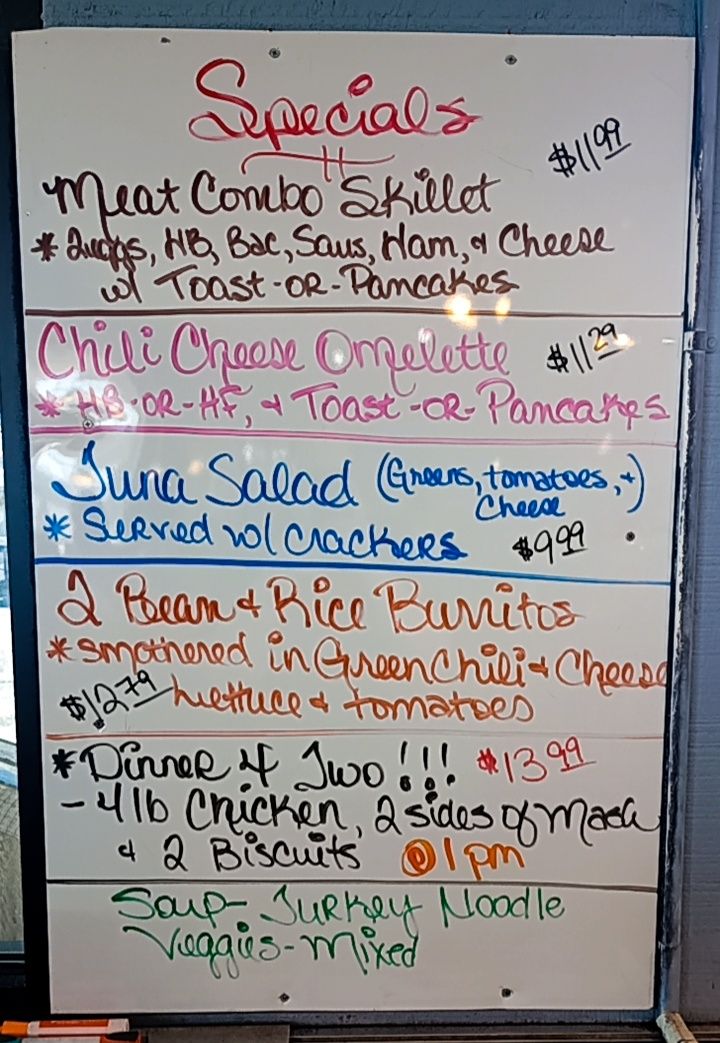 Specials
Meat Combo Skillet $11.99
* 2 eggs, HB, Bac, Saus, Ham, & Cheese
w/ Toast -OR- Pancakes
Chili Cheese Omelette $11.29
* HB -OR- HF, & Toast -OR- Pancakes
Tuna Salad (Greens, tomatoes, +)
Cheese
* Served w/ crackers $9.99
2 Bean & Rice Burritos
* smothered in Green Chili & Cheese
$12.79 Lettuce & tomatoes
* Dinner 4 Two!!! $13.99
- 4 lb Chicken, 2 sides of Mash
& 2 Biscuits @ 1 pm
Soup- Turkey Noodle
Veggies- Mixed